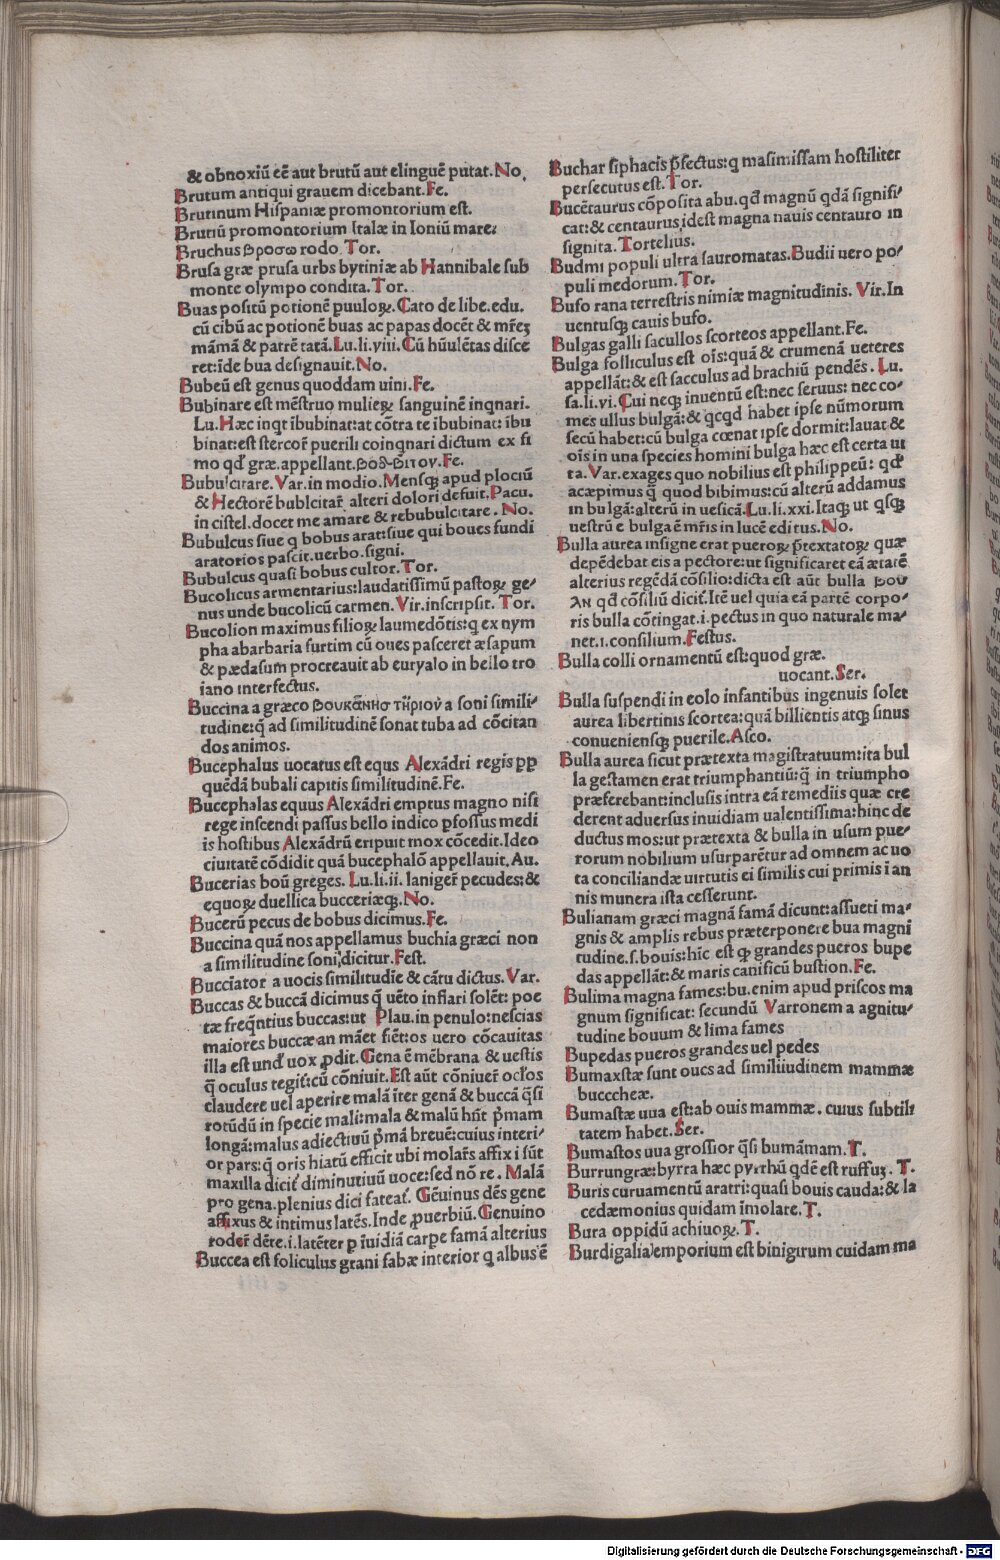 & obnoxiū eē aut brutū aut elinguē putat. No.
Brutum antiqui grauem dicebant. Fe.
Brutinum Hispaniæ promontorium est.
Brutiū promontorium Italæ in Ioniū mare:
Bruchus βροσω rodo. Tor.
Brusa græ prusa urbs bytiniæ ab Hannibale sub
monte olympo condita. Tor.
Buas positū potionē puuloꝝ. Cato de libe. edu.
cū cibū ac potionē buas ac papas docēt & mr̄eʒ
māmā & patrē tatā. Lu. li. viii. Cū hūulētas disce
ret: īde bua designauit. No.
Bubeū est genus quoddam uini. Fe.
Bubinare est mēstruo mulieꝝ sanguinē inqnari.
Lu. Hæc inqt ibubinat: at cōtra te ibubinat: ibu
binat: est stercor̄ puerili coinqnari dictum ex fi
mo qd̛ græ. appellant. βοθ-βιτον. Fe.
Bubulcitare. Var. in modio. Mensqȝ apud plociū
& Hectorē bublcitar̄ alteri dolori desuit. Pacu.
in cistel. docet me amare & rebubulcitare. No.
Bubulcus siue q bobus arat: siue qui boues fundi
aratorios pascit. uerbo. signi.
Bubulcus quasi bobus cultor. Tor.
Bucolicus armentarius: laudatissimū pastoꝝ ge-
nus unde bucolicū carmen. Vir. inscripsit. Tor.
Bucolion maximus filioꝝ laumedōtis: q ex nym
pha abarbaria furtim cū oues pasceret æsapum
& pædasum procreauit ab euryalo in bello tro
iano interfectus.
Buccina a græco βουκᾶνησ τῆριον a soni simili-
tudine: q̄ ad similitudinē sonat tuba ad cōcitan
dos animos.
Bucephalus uocatus est equs Alexādri regis ꝓp
quēdā bubali capitis similitudinē. Fe.
Bucephalas equus Alexādri emptus magno nisi
rege inscendi passus bello indico ꝑfossus medi
is hostibus Alexādrū eripuit mox cōcedit. Ideo
ciuitatē cōdidit quā bucephalō appellauit. Au.
Bucerias boū greges. Lu. li. ii. laniger̄ pecudes: &
equoꝝ duellica bucceriæqȝ. No.
Bucerū pecus de bobus dicimus. Fe.
Buccina quā nos appellamus buchia græci non
a similitudine soni, dicitur. Fest.
Bucciator a uocis similitudīe & cātu dictus. Var.
Buccas & buccā dicimus q̄ uēto inflari solēt: poe
tæ freqntius buccas: ut Plau. in penulo: nescias
maiores buccæ an māet fiēt: os uero cōcauitas
illa est und̛ uox ꝓdit. Gena ē mēbrana & uestis
q̄ oculus tegit̄: cū cōniuit. Est aūt cōniuer̄ oc̄los
claudere uel aperire malā īter genā & buccā q̄si
rotūdū in specie mali: mala & malū hn̄t p̄mam
longā: malus adiectiuū p̄mā breuē: cuius interi-
or pars: q̄ oris hiatū efficit ubi molar̄s affix i sūt
maxilla dicit̄ diminutiuū uoce: sed nō re. Malā
pro gena. plenius dici fateat̄. Gēuinus dēs gene
affixus & intimus latēs. Inde ꝓuerbiū. Genuino
roder̄ dēte. i. latēter ꝑ īuidiā carpe famā alterius
Buccea est foliculus grani fabæ interior q albus ē
Buchar siphacis p̄fectus: q masimissam hostiliter
persecutus est. Tor.
Bucētaurus cōposita abu. qd̛ magnū qdā signifi-
cat: & centaurus, idest magna nauis centauro in
signita. Tortelius.
Budini populi ultra sauromatas. Budii uero po-
puli medorum. Tor.
Bufo rana terrestris nimiæ magnitudinis. Vir. In
uentusqȝ cauis bufo.
Bulgas galli sacullos scorteos appellant. Fe.
Bulga folliculus est oīs: quā & crumenā ueteres
appellāt: & est sacculus ad brachiū pendēs. Lu.
sa. li. vi. Cui neqȝ inuentū est: nec seruus: nec co-
mes ullus bulgā: & qcqd habet ipse nūmorum
secū habet: cū bulga cœnat ipse dormit: lauat &
oīs in una species homini bulga hæc est certa ut
ta. Var. exages quo nobilius est philippeū: qd̛
acæpimus q̄ quod bibimus: cū alterū addamus
in bulgā: alterū in uesicā. Lu. li. xxi. Itaqȝ ut qsqȝ
uestrū e bulga ē mr̄is in lucē editus. No.
Bulla aurea insigne erat pueroꝝ p̄textatoꝝ quæ
depēdebat eis a pectore: ut significaret eā ætatē
alterius regēdā cōsilio: dicta est aūt bulla βου
λΗ qd̛ cōsiliū dicit̄. Itē uel quia eā partē corpo-
ris bulla cōtingat. i. pectus in quo naturale ma-
net. i. consilium. Festus.
Bulla colli ornamentū est: quod græ.
uocant. Ser.
Bulla suspendi in eolo infantibus ingenuis solet
aurea libertinis scortea: quā billientis atqȝ sinus
conueniensqȝ puerile. Asco.
Bulla aurea sicut prætexta magistratuum: ita bul
la gestamen erat triumphantiū: q̄ in triumpho
præferebant: inclusis intra eā remediis quæ cre
derent aduersus inuidiam ualentissima: hinc de
ductus mos: ut prætexta & bulla in usum pue-
rorum nobilium usurparētur ad omnem ac uo
ta conciliandæ uirtutis ei similis cui primis ī an
nis munera ista cesserunt.
Bulianam græci magnā famā dicunt: assueti ma-
gnis & amplis rebus præterponere bua magni
tudine. s. bouis: hīc est ꝙ grandes pueros bupe
das appellāt: & maris canificū bustion. Fe.
Bulima magna fames: bu. enim apud priscos ma
gnum significat: secundū Varronem a agnitu-
tudine bouum & lima fames
Bupedas pueros grandes uel pedes
Bumaxstæ sunt oucs ad similiiudinem mammæ
bucccheæ.
Bumastæ uua est: ab ouis mammæ. cuius subtili
tatem habet. Ser.
Bumastos uua grossior q̄si bumāmam. T.
Burrungræ: byrra hæc pyrrhū qdē est ruffuʒ. T.
Buris curuamentū aratri: quasi bouis cauda: & la
cedæmonius quidam īmolare. T.
Bura oppidū achiuoꝝ. T.
Burdigalia emporium est binigirum cuidam ma
Digitalisierung gefördert durch die Deutsche Forschungsgemeinschaft - DFG